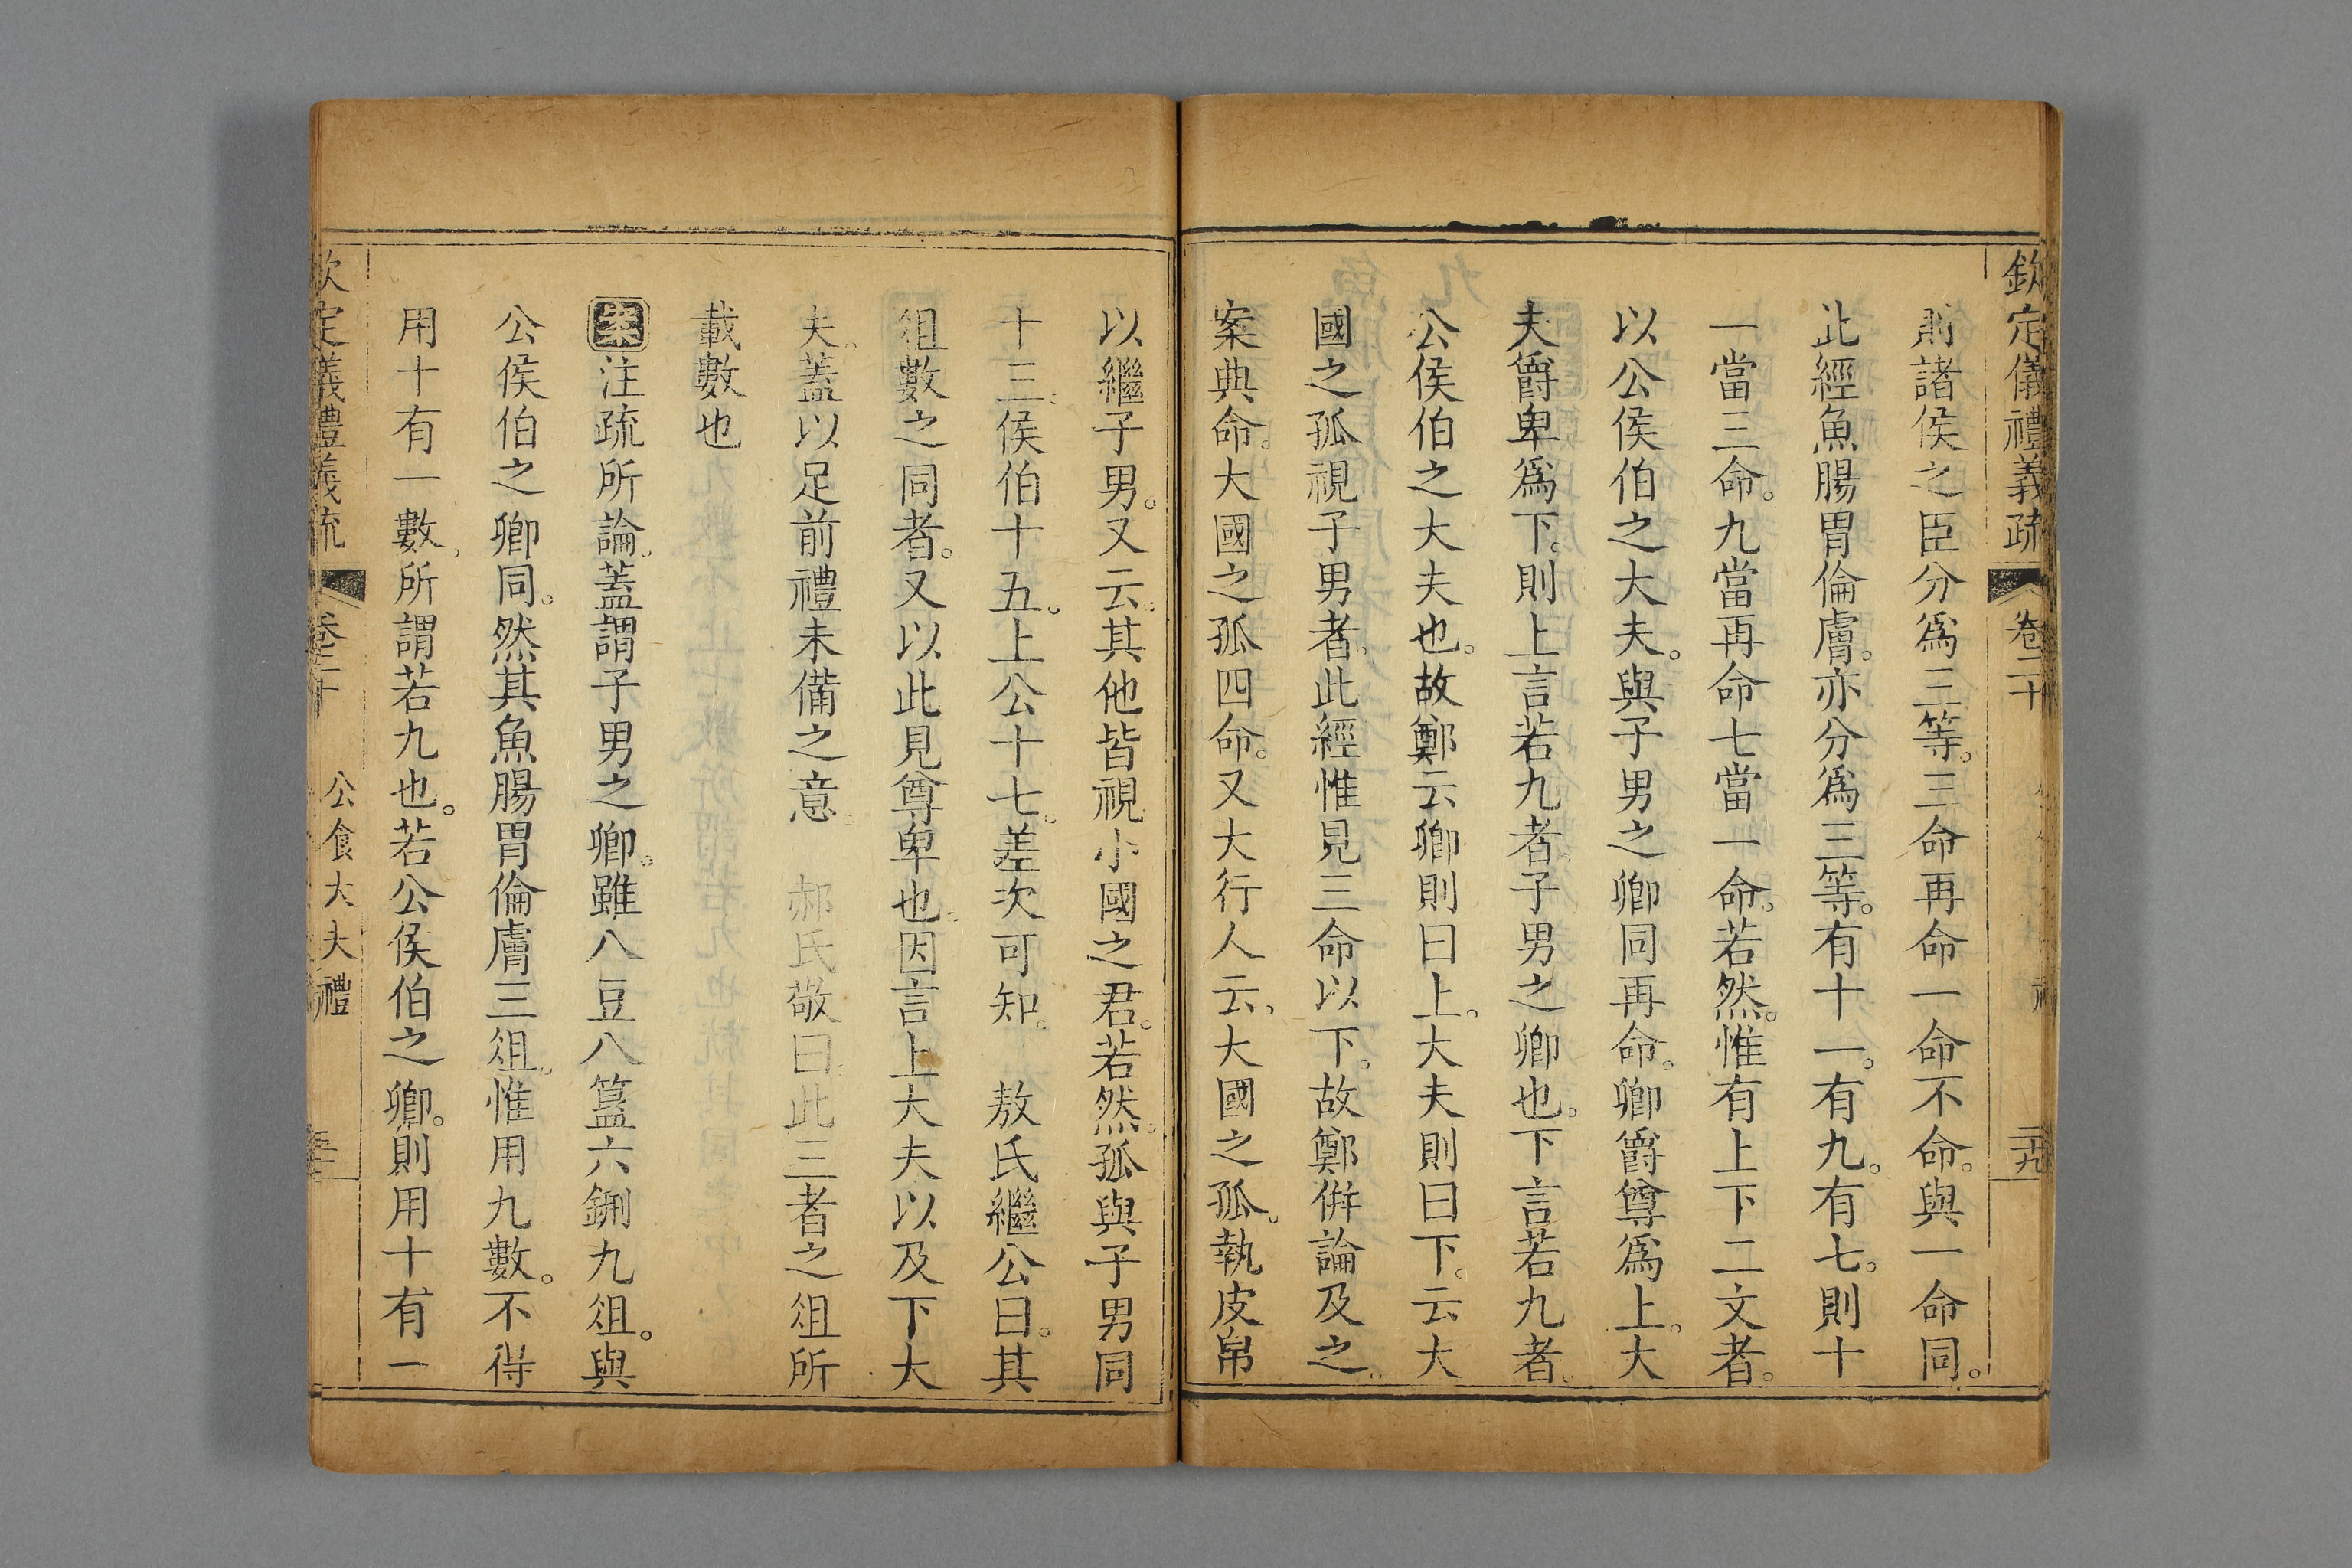 欽定儀禮義疏 卷二十
則諸侯之臣分爲三等。三命再命一命不命。與一命同。
此經魚腸胃倫膚。亦分爲三等。有十一。有九。有七。則十
一當三命。九當再命七當一命。若然。惟有上下二文者。
以公侯伯之大夫。與子男之卿同再命。卿爵尊爲上。大
夫爵卑爲下。則上言若九者。子男之卿也。下言若九者。
公侯伯之大夫也。故鄭云卿則曰上。大夫則曰下。云大
國之孤視子男者。此經惟見三命以下。故鄭併論及之。
案典命。大國之孤四命。又大行人云。大國之孤。執皮帛
以繼子男。又云。其他皆視小國之君。若然。孤與子男同
十三。侯伯十五。上公十七。差次可知。 敖氏繼公曰。其
俎數之同者。又以此見尊卑也。因言上大夫以及下大
夫。蓋以足前禮未備之意。 郝氏敬曰。此三者之俎所
載數也
案注疏所論。蓋謂子男之卿。雖八豆八簋六鉶九俎。與
公侯伯之卿同。然其魚腸胃倫膚三俎。惟用九數。不得
用十有一數。所謂若九也。若公侯伯之卿。則用十有一
欽定儀禮義疏 卷二十 公食大夫禮